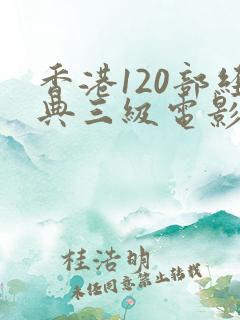 香港120部经
典三级电影
桂浩明
未经同意禁止转载